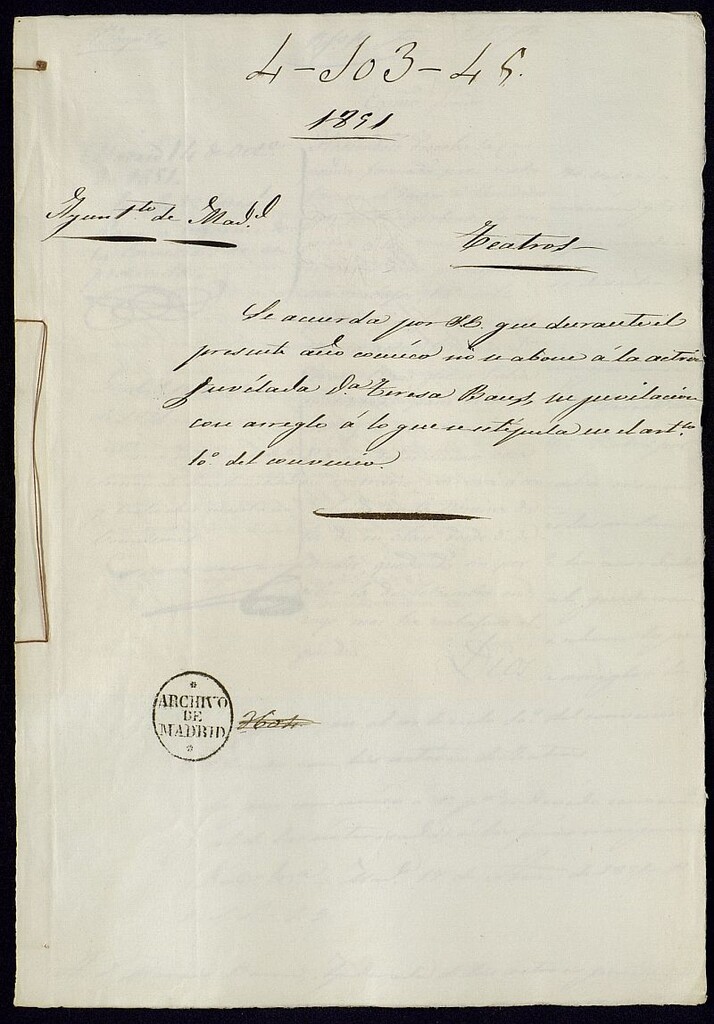 4-103-45.
1851
Ayunt.to de Mad.d
Teatros
Se acuerda por S.E. que durante el
presente año cómico no se abone á la actriz
jubilada D.a Teresa Baus, su jubilacion
con arreglo á lo que se estipula en el art.to
10.o del convenio.
ARCHIVO
DE
MADRID